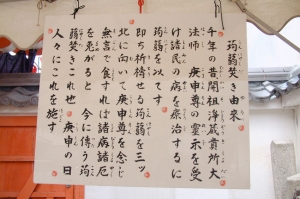 蒟蒻焚き由来
千年の昔開祖浄蔵貴所大
法師 庚申尊の霊示を受
け諸民の病を療治するに
蒟蒻を以てす
即ち祈祷せる蒟蒻を三ッ
北に向いて庚申尊を念じ
無言で食すれば諸病諸厄
を免がると 今に傳う蒟
蒻焚きこれ也 庚申の日
人々にこれを施す